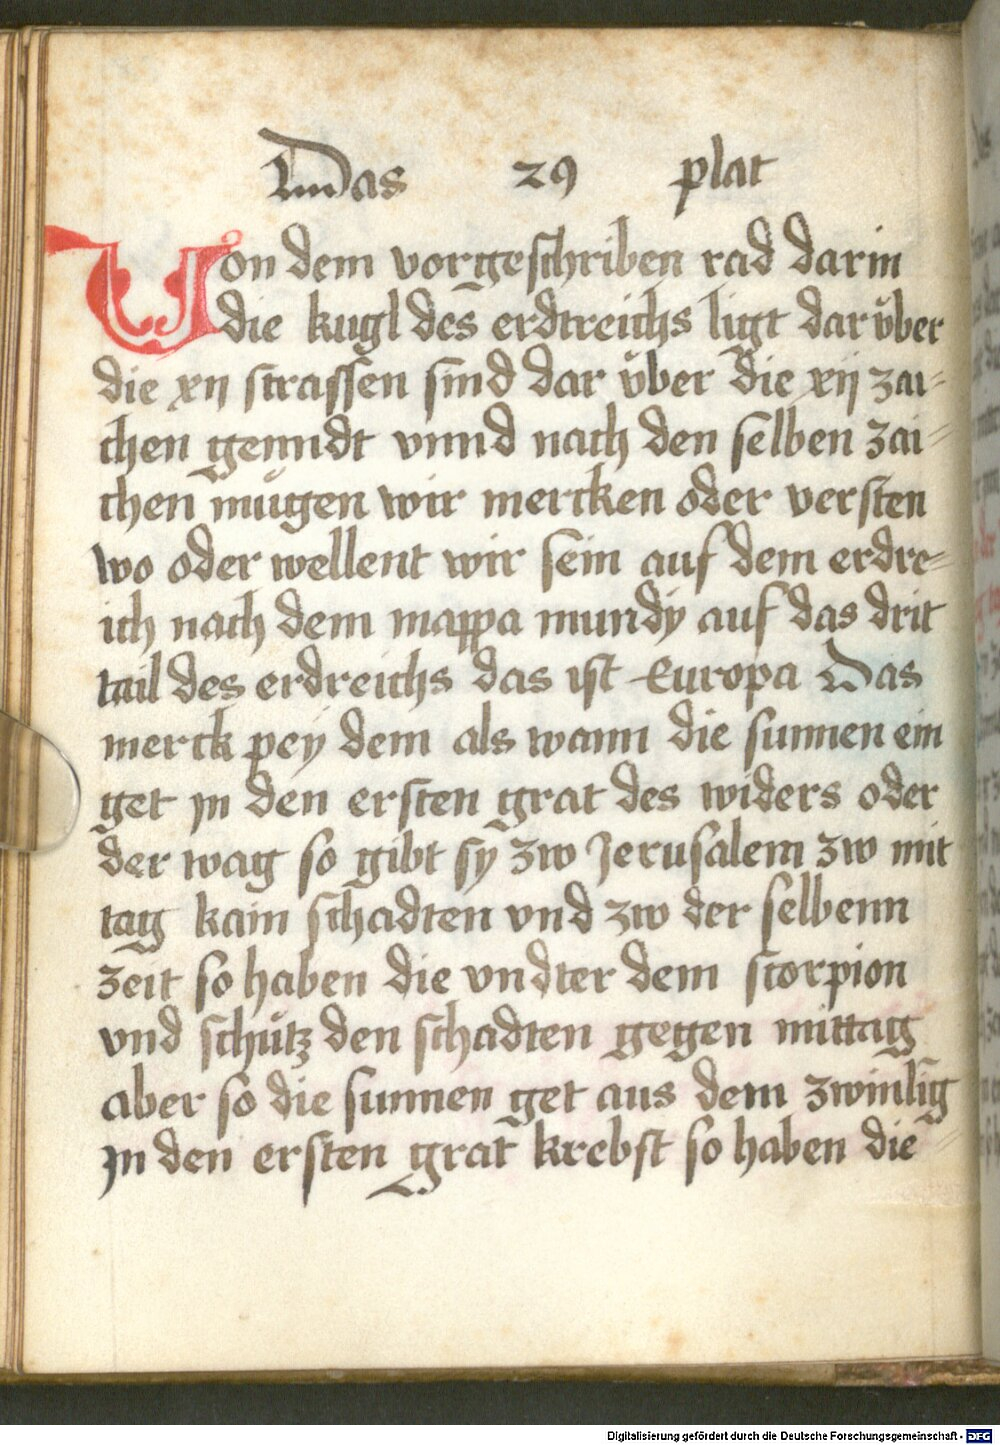 Das 29 plat
Von dem vorgeschriben rad darin
die kugl des erdtreichs ligt darüber
die xij strassen sind dar über die xij zai=
chen genndt vnnd nach den selben zai=
chen mügen wir mercken oder versten
wo oder wellent wir sein auf dem erdre=
ich nach dem mappa mundy auf das drit
tail des erdreichs das ist Europa Das
merck pey dem als wann die sunnen ein
get jn den ersten grat des widers oder
der wag so gibt sy zw Jerusalem zw mit
tag kain schadten vnd zw der selbenn
zeit so haben die vndter dem scorpion
vnd schütz den schadten gegen mittag
aber so die sunnen get aus dem zwinlig
jn den ersten grat krebst so haben die
Digitalisierung gefördert durch die Deutsche Forschungsgemeinschaft - DFG